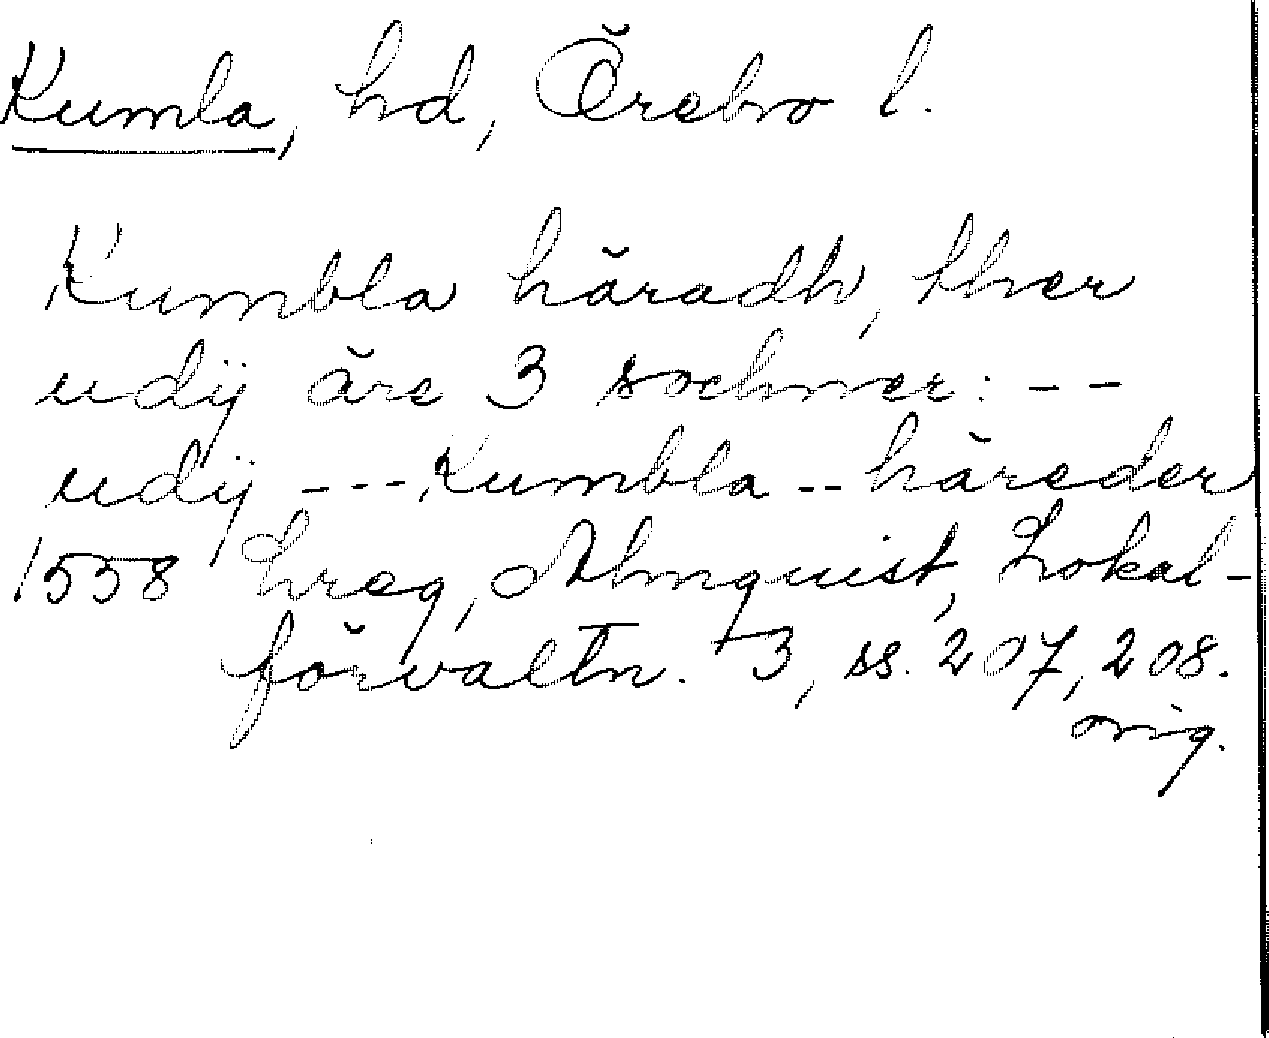 Kumla, hd, Örebro l.
Kumbla häradh, ther
udij äre 3 sochner: --
udij --- Kumbla -- häreder
1558 hreg, Almquist, Lokal-
förvaltn. 3, ss. 207, 208.
orig.